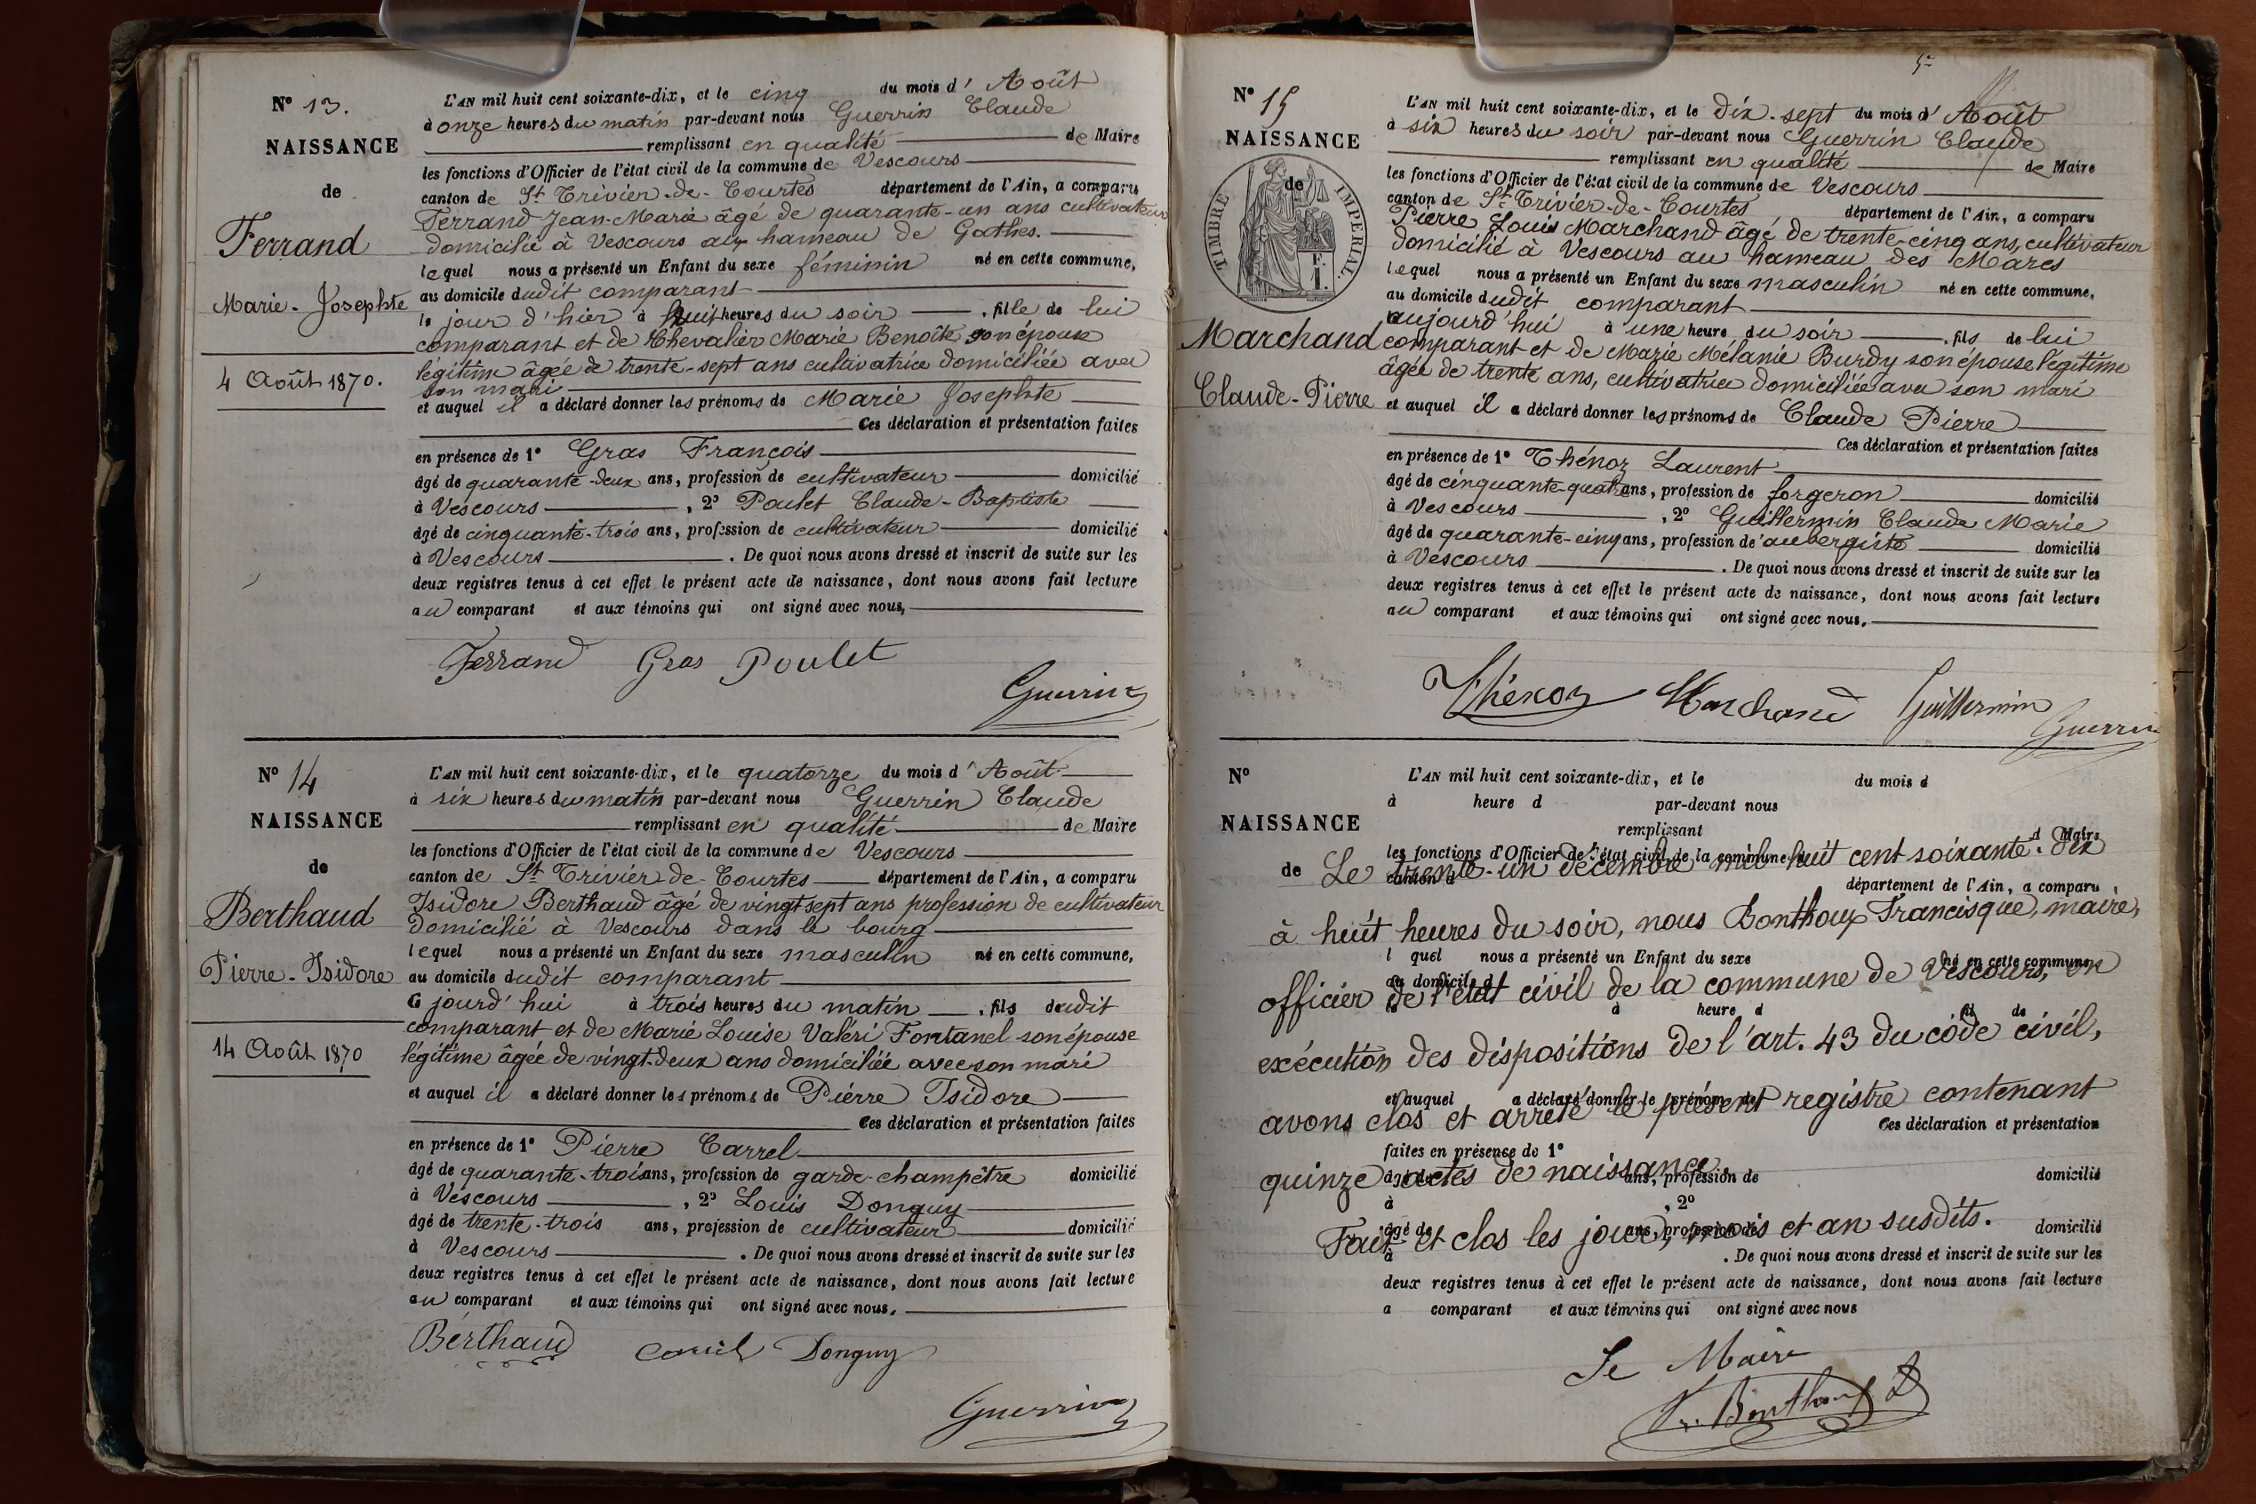 N° 13.
NAISSANCE
de
Ferrand
Marie-Josephte
4 Août 1870.
L'AN mil huit cent soixante-dix, et le cinq du mois d' Août
à onze heures du matin par-devant nous Guerrin Claude
remplissant en qualité de Maire
les fonctions d'Officier de l'état civil de la commune de Vescours
canton de St Trivier-de-Courtes département de l'Ain, a comparu
Ferrand Jean-Marie âgé de quarante-un ans cultivateur
domicilié à Vescours au hameau de Gothes.
lequel nous a présenté un Enfant du sexe féminin né en cette commune,
au domicile dudit comparant
le jour d'hier à huit heures du soir, fille de lui
comparant et de Chevalier Marie Benoîte son épouse
légitime âgée de trente-sept ans cultivatrice domiciliée avec
son mari
et auquel il a déclaré donner les prénoms de Marie Josephte
Ces déclaration et présentation faites
en présence de 1° Gras François
âgé de quarante-deux ans, profession de cultivateur domicilié
à Vescours, 2° Poulet Claude-Baptiste
âgé de cinquante-trois ans, profession de cultivateur domicilié
à Vescours. De quoi nous avons dressé et inscrit de suite sur les
deux registres tenus à cet effet le présent acte de naissance, dont nous avons fait lecture
au comparant et aux témoins qui ont signé avec nous,
Ferrand Gras Poulet
Guerrin
N° 14
NAISSANCE
de
Berthaud
Pierre-Isidore
14 Août 1870
L'AN mil huit cent soixante-dix, et le quatorze du mois d' Août
à six heures du matin par-devant nous Guerrin Claude
remplissant en qualité de Maire
les fonctions d'Officier de l'état civil de la commune de Vescours
canton de St Trivier-de-Courtes département de l'Ain, a comparu
Isidore Berthaud âgé de vingt sept ans profession de cultivateur
domicilié à Vescours dans le bourg
lequel nous a présenté un Enfant du sexe masculin né en cette commune,
au domicile dudit comparant
jourd'hui à trois heures du matin, fils dudit
comparant et de Marie Louise Valéri Fontanel son épouse
légitime âgée de vingt-deux ans domiciliée avec son mari
et auquel il a déclaré donner les prénoms de Pierre Isidore
Ces déclaration et présentation faites
en présence de 1° Pierre Carrel
âgé de quarante-trois ans, profession de garde-champêtre domicilié
à Vescours, 2° Louis Donguy
âgé de trente-trois ans, profession de cultivateur domicilié
à Vescours. De quoi nous avons dressé et inscrit de suite sur les
deux registres tenus à cet effet le présent acte de naissance, dont nous avons fait lecture
au comparant et aux témoins qui ont signé avec nous,
Berthaud Donguy
Guerrin
N° 15
NAISSANCE
de
TIMBRE IMPERIAL.
Marchand
Claude-Pierre
L'AN mil huit cent soixante-dix, et le dix-sept du mois d' Août
à six heures du soir par-devant nous Guerrin Claude
remplissant en qualité de Maire
les fonctions d'Officier de l'état civil de la commune de Vescours
canton de St Trivier-de-Courtes département de l'Ain, a comparu
Pierre Louis Marchand âgé de trente-cinq ans, cultivateur
domicilié à Vescours au hameau des Mares
lequel nous a présenté un Enfant du sexe masculin né en cette commune,
au domicile dudit comparant
aujourd'hui à une heure du soir, fils de lui
comparant et de Marie Mélanie Burdy son épouse légitime
âgée de trente ans, cultivatrice domiciliée avec son mari
et auquel il a déclaré donner les prénoms de Claude Pierre
Ces déclaration et présentation faites
en présence de 1° Thénoz Laurent
âgé de cinquante-quatre ans, profession de forgeron domicilié
à Vescours, 2° Guillermin Claude Marie
âgé de quarante-cinq ans, profession de aubergiste domicilié
à Vescours. De quoi nous avons dressé et inscrit de suite sur les
deux registres tenus à cet effet le présent acte de naissance, dont nous avons fait lecture
au comparant et aux témoins qui ont signé avec nous,
Thénoz Marchand Guillermin
Guerrin
N°
NAISSANCE
de
L'AN mil huit cent soixante-dix, et le du mois d
à heure d par-devant nous
remplissant d Maire
les fonctions d'Officier de l'état civil de la commune d
Le trente-un décembre mil huit cent soixante-dix
canton d département de l'Ain, a comparu
à huit heures du soir, nous Bonthoux Francisque, maire,
l quel nous a présenté un Enfant du sexe né en cette commune,
au domicile d
officier de l'état civil de la commune de Vescours, en
à heure d fil de
exécution des dispositions de l'art. 43 du code civil,
et auquel a déclaré donner le prénom de
avons clos et arrêté le présent registre contenant
Ces déclaration et présentation
faites en présence de 1°
quinze actes de naissance.
âgé de ans, profession de domicilié
à , 2°
âgé de ans, profession de domicilié
Fait et clos les jour, mois et an susdits.
à . De quoi nous avons dressé et inscrit de suite sur les
deux registres tenus à cet effet le présent acte de naissance, dont nous avons fait lecture
a comparant et aux témoins qui ont signé avec nous
Le Maire
Bonthoux